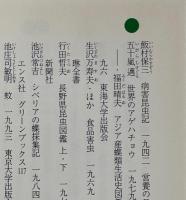 飯村保三 病害昆虫記 一九四一 営養の
五十嵐邁 世界のアゲハチョウ 一九七九
―― 福田晴夫 アジア産蝶類生活史図
九六 東海大学出版会
生沢万寿夫・ほか 食品害虫 一九六九
琳全書
行田哲夫 長野県昆虫図鑑 上・下 一九
新聞社
池沢常吉 シベリアの蝶採集記 一九八四
エンス社 グリーンブックス117
池庄司敏明 蚊 一九九三 東京大学出版